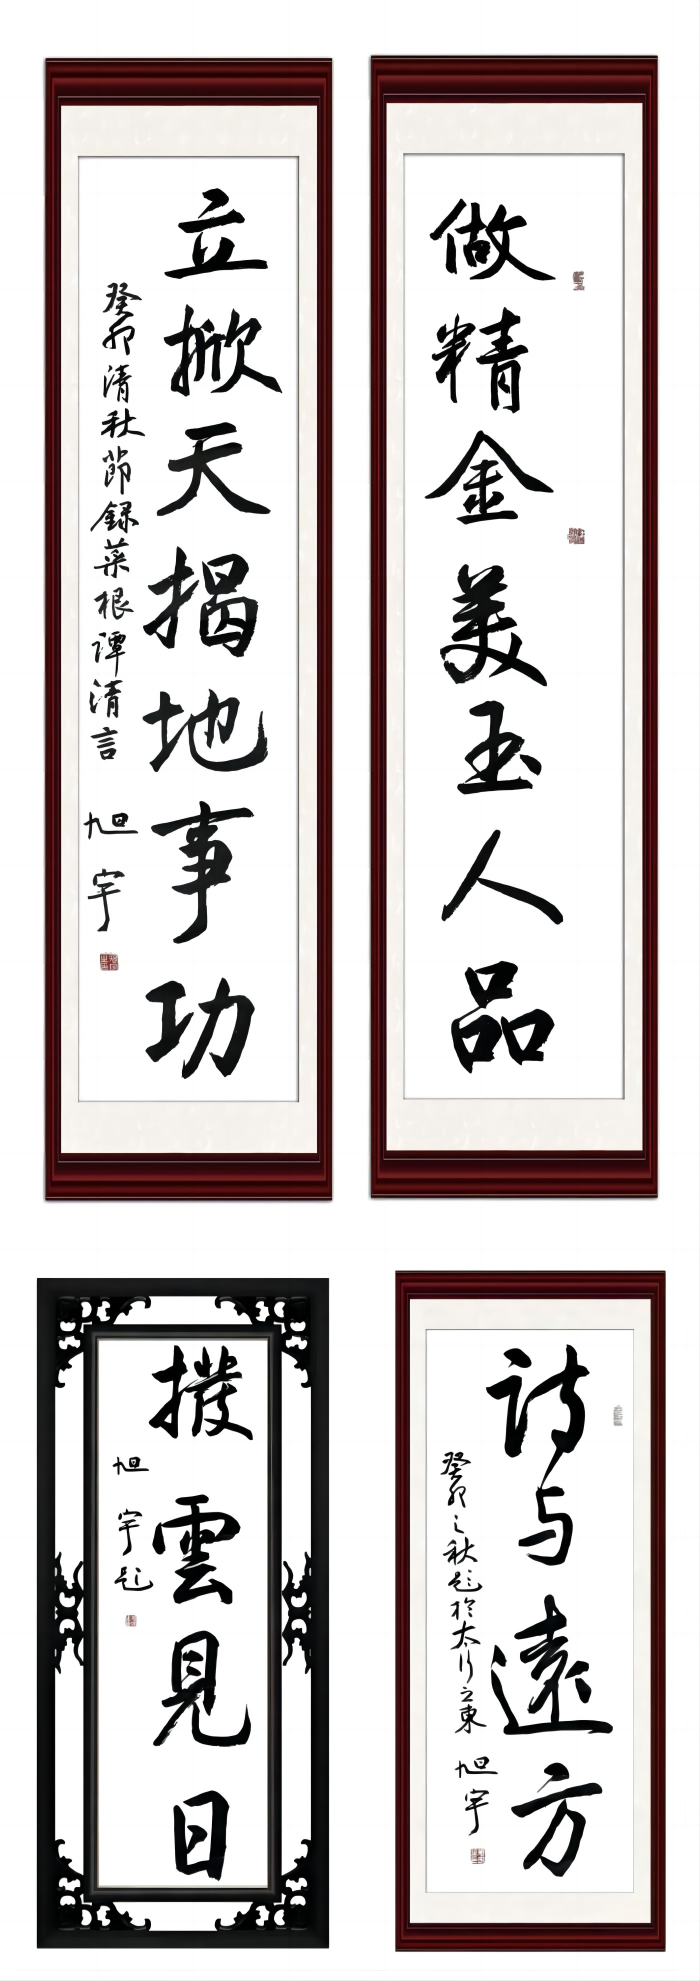 做精金美玉人品
立掀天揭地事功
癸卯清秋節録菜根谭清言
旭宇
撥雲見日
旭宇题
诗与遠方
癸卯之秋题於太行之東
旭宇